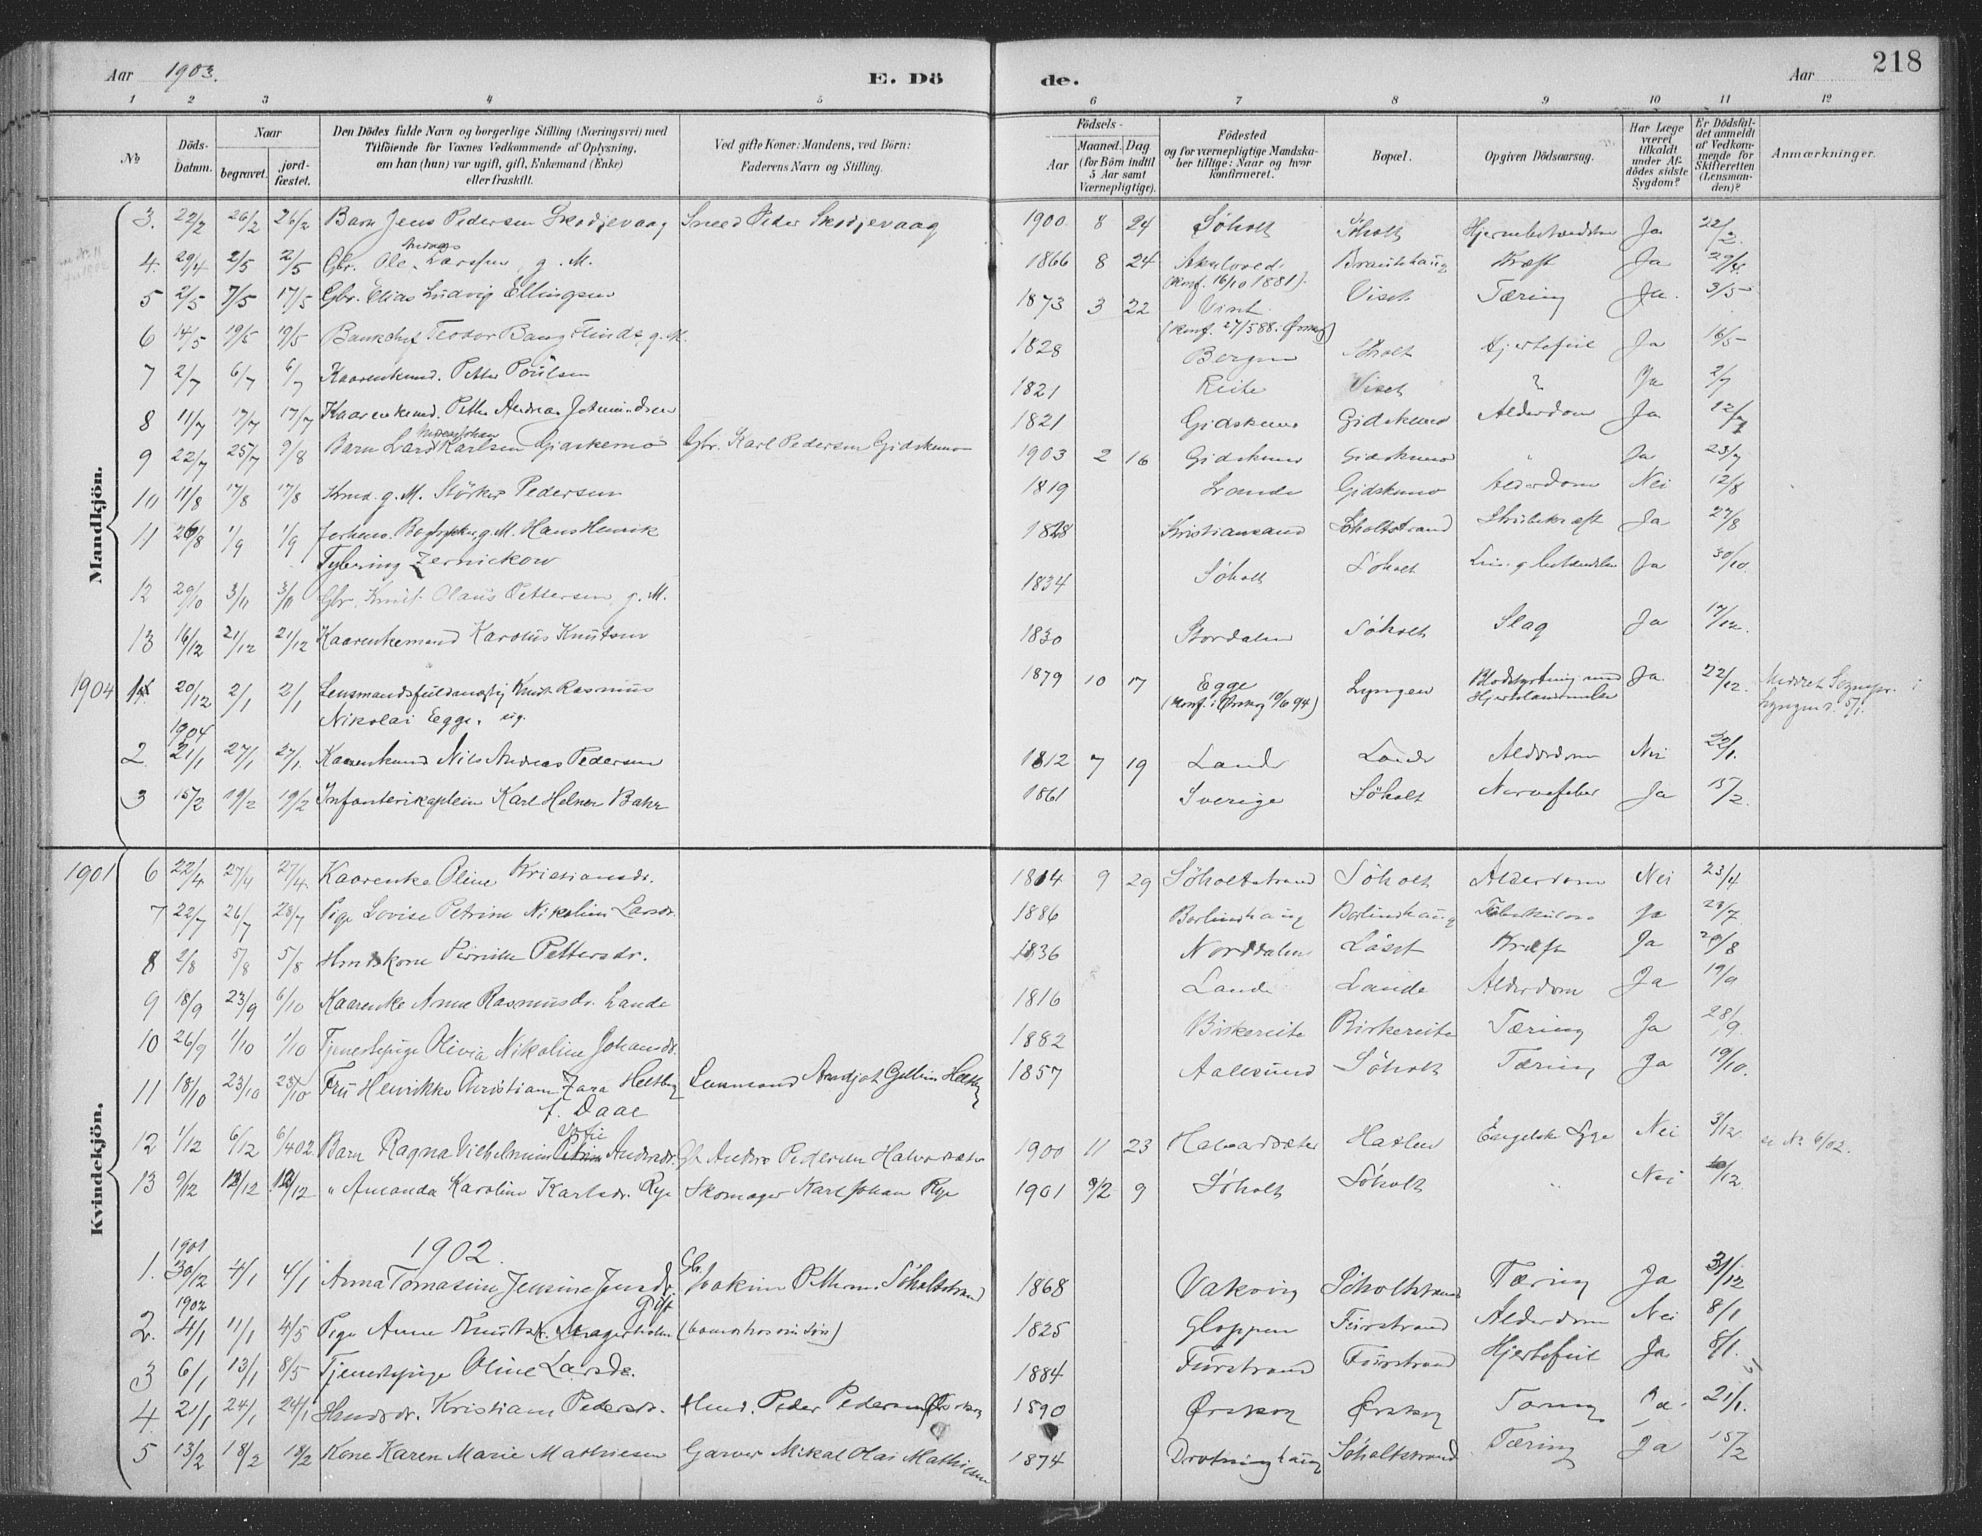 Aar 1903. E. Dö de. Aar 218
1 2 3 4 5 6 7 8 9 10 11 12
No Döds-Datum. Naar begravet. jord-fæstet. Den Dödes fulde Navn og borgerlige Stilling (Næringsvei) med Tilföiende for Voxnes Vedkommende af Oplysning, om han (hun) var ugift, gift, Enkemand (Enke) eller fraskilt. Ved gifte Koner: Mandens, ved Börn: Faderens Navn og Stilling. Födsels- Aar Maaned. Dag (for Börn indtil 5 Aar samt Værnepligtige). Födested og for værnepligtige Mandska-ber tillige: Naar og hvor konfirmeret. Bopæl. Opgiven Dödsaarsag. Har Læge været tilkaldt under Af-dödes sidste Sygdom? Er Dödsfal-det anmeldt af Vedkom-mende for Skifteretten (Lensman-den)? Anmærkninger.
Mandkjön.
3. 22/2 26/2 26/2 Barn Jens Pedersen Skodjevaag Peder Skodjevaag 1900 8 24 Söholt Söholt Ja 22/2.
4. 29/4 2/5 2/5 Gbr. Ole Larssen, g. M. 1866 8 24 Kræft Ja 29/4
(konf. 16/10 1881).
5 2/5 7/5 17/5 Gbr. Elias Ludvig Ellingsen 1873 3 22 Viset Tæring Ja. 3/5
(konf. 27/5 88. Ørskog)
6 14/5 19/5 19/5 Teodor Bang g. M. 1828 Bergen Söholt Hjertefeil Ja 16/5
7 2/7 6/7 6/7 Kaarenkemd. Petter Poulsen 1821 Reite Viset " Ja 2/7
8 11/7 17/7 17/7 Kaarenkemd. Petter Andreas 1821 Gidskemo Gidskemo Alderdom Ja 12/7
9 22/7 25/7 9/8 Barn Lars Karlsen Giskemo Gbr. Karl Pedersen Gidskemo 1903 2 16 Gidskemo Gidskemo " Ja 23/7
10 11/8 17/8 17/8 Kmd. g. M. Störker Pedersen 1819 Lande Gidskemo Alderdom Nei 12/8
11 26/8 1/9 1/9 g. M. Hans Henrik 1828 Kristiansand Söholtstrand Strubekræft Ja 27/8
Tybring Zernickow
12 29/10 3/11 3/11 Gbr. Knut Olaus Pettersen, g. M. 1834 Söholt Söholt Ja 30/10
13 16/12 21/12 21/12 Kaarenkemand Karolus Knutsen 1830 Stordalen Söholt Slag Ja 17/12.
1904 1 20/12 2/1 2/1 Lensmandsfuldmægtig Knut Rasmus 1879 10 17 Egge Lyngen Blodstyrtning med Ja. 22/12.
Nikolai Egge. ug. (konf. i Ørskog 10/6 94)
1904
2 21/1 27/1 27/1. Kaarenkemd Nils Andreas Pedersen 1812 7 19 Lande Lande Alderdom Nei 22/1.
3 15/2 19/2 19/2 Infanterikaptein Karl Helmer Bahr 1861 Sverige Söholt Nervefeber Ja 15/2.
Kvindekjön.
1901 6 22/4 27/4 27/4. Kaarenke Oline Kristiansdr. 1814 9 29 Söholtstrand Söholt Alderdom Nei 23/4
7 22/7 26/7 28/7 Pige Lovise Petrine Nikoline Larsdr. 1886 Tuberkulose Ja 23/7
8 2/8 5/8 5/8 Hmdskone Pernille Pettersdr. 1836 Norddalen Löset Kræft Ja
9 18/9 23/9 6/10 Kaarenke Anne Rasmusdr. Lande 1816 Lande Lande Alderdom Ja 19/9
10 26/9 1/10 1/10 Tjenestepige Olivia Nikoline Johansdr. 1882 Birkereite Birkereite Tæring Ja 28/9.
11 18/10 23/10 23/10 Fru Henrikke Christiane Zara Heltberg Lensmand 1857 Aalesund Söholt Tæring Ja 19/10.
f. Daae
12 1/12 6/12 6/4 02 Barn Ragna Vilhelmine Sofie Andersdr. Anders Pedersen 1900 11 23 Engelsk Syge Nei 3/12 se Nr 6/02.
13 9/12 13/12 Amanda Karoline Karlsdr. Rye Skomager Karl Johan Rye 1901 9/2 9 Söholt Söholt " Nei 10/12
1901
1902.
1. 30/12 4/1 4/1 Anna Tomasine Jensine Jensdr. Gbr. Joakim Söholtstrand 1868 Vakvig Söholtstrand Tæring Ja 31/12
1902 Gift
2. 4/1 11/1 4/5 Pige Anne Knutsdr. 1825 Gloppen Furstrand Alderdom Nei 8/1
3 6/1 13/1 8/5 Tjenestepige Oline Larsdr. 1884 Furstrand Furstrand Hjertefeil Ja 8/1.
4. 21/1 24/1 24/1 Kristiane Pedersdr. Hmd. Peder Pedersen Ørskog 1890 Ørskog Ørskog Ja. 21/1.
5 13/2 18/2 18/2 Kone Karen Marie Mathiesen Garver Mikal Olai Mathiesen 1874 Drotninghaug Söholtstrand Tæring Ja 15/2